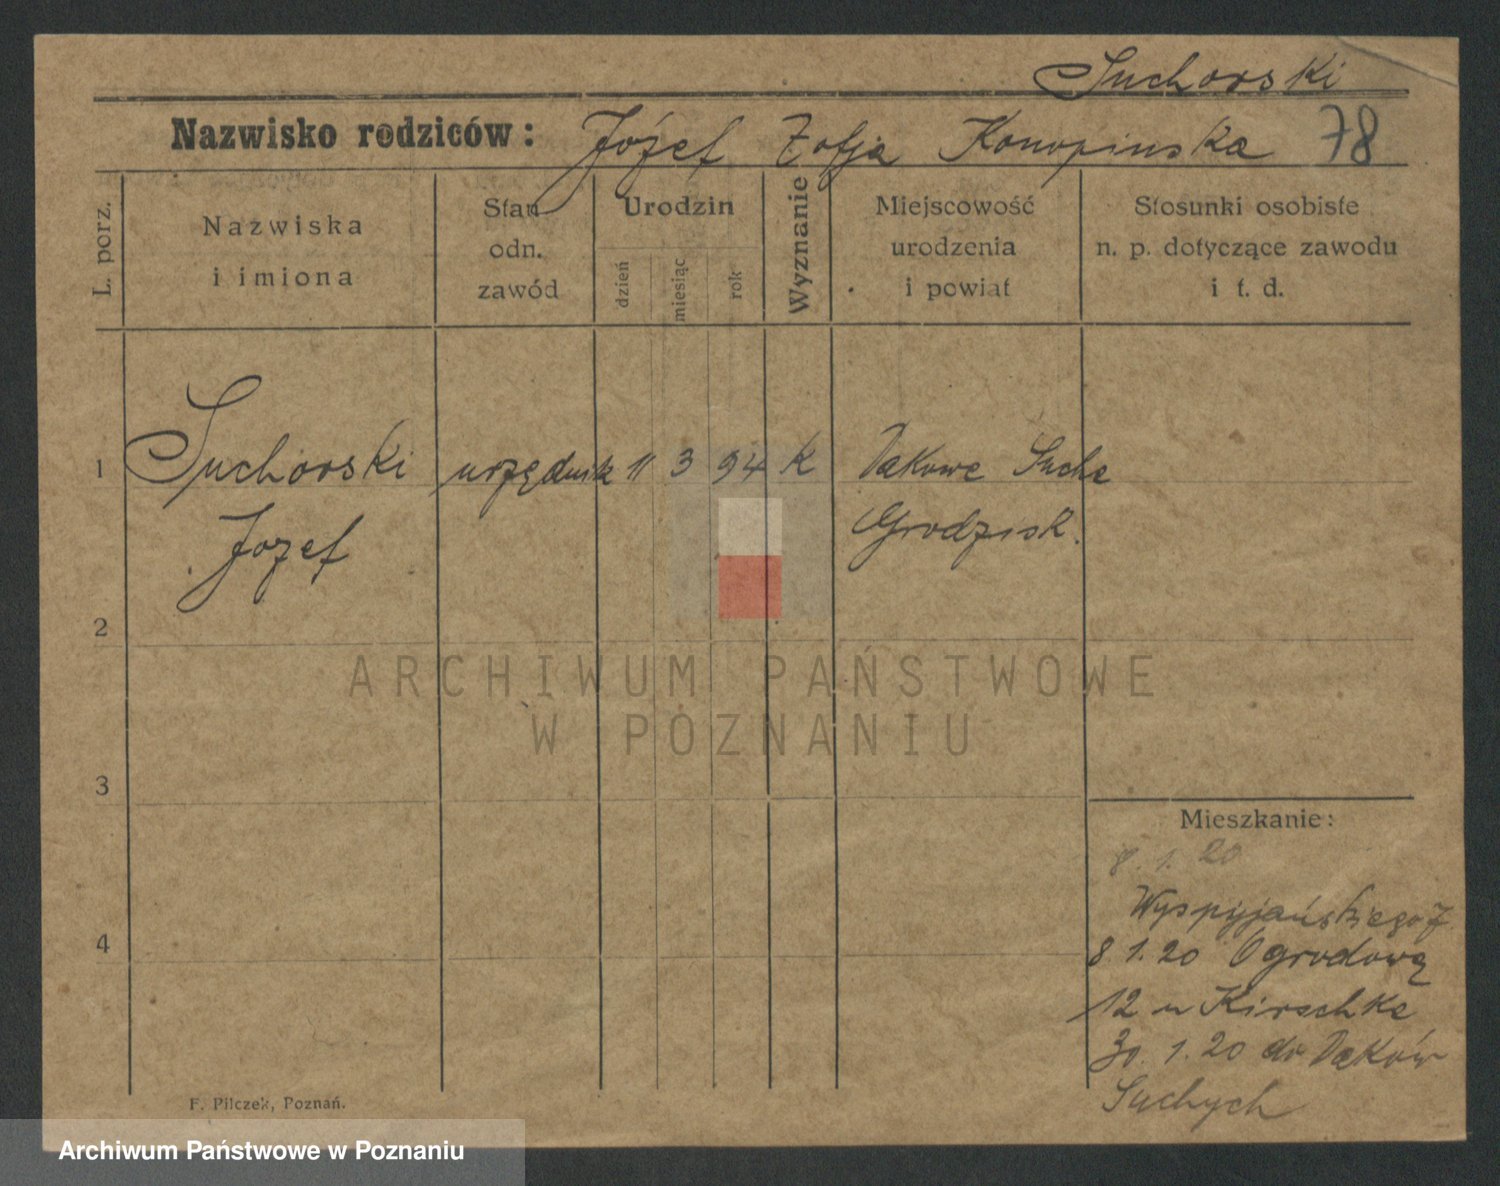 Suchorski
Nazwisko rodziców: Józef Zofja Konopinska 78
L. porz.
Nazwiska
i imiona
Stan
odn.
zawód
Urodzin
dzień
miesiąc
rok
Wyznanie
Miejscowość
urodzenia
i powiat
Stosunki osobiste
n. p. dotyczące zawodu
i t. d.
1 Suchorski urzędnik 11 3 94 K Dakowe Suche
Jozef Grodzisk.
2
ARCHIWUM PAŃSTWOWE
W POZNANIU
3
Mieszkanie:
8. 1. 20
Wyspijańskiego 7
4
8 1. 20 Ogrodowa
12 u Kirschke
30. 1. 20 do Daków
Suchych
F. Pilczek, Poznań.
Archiwum Państwowe w Poznaniu